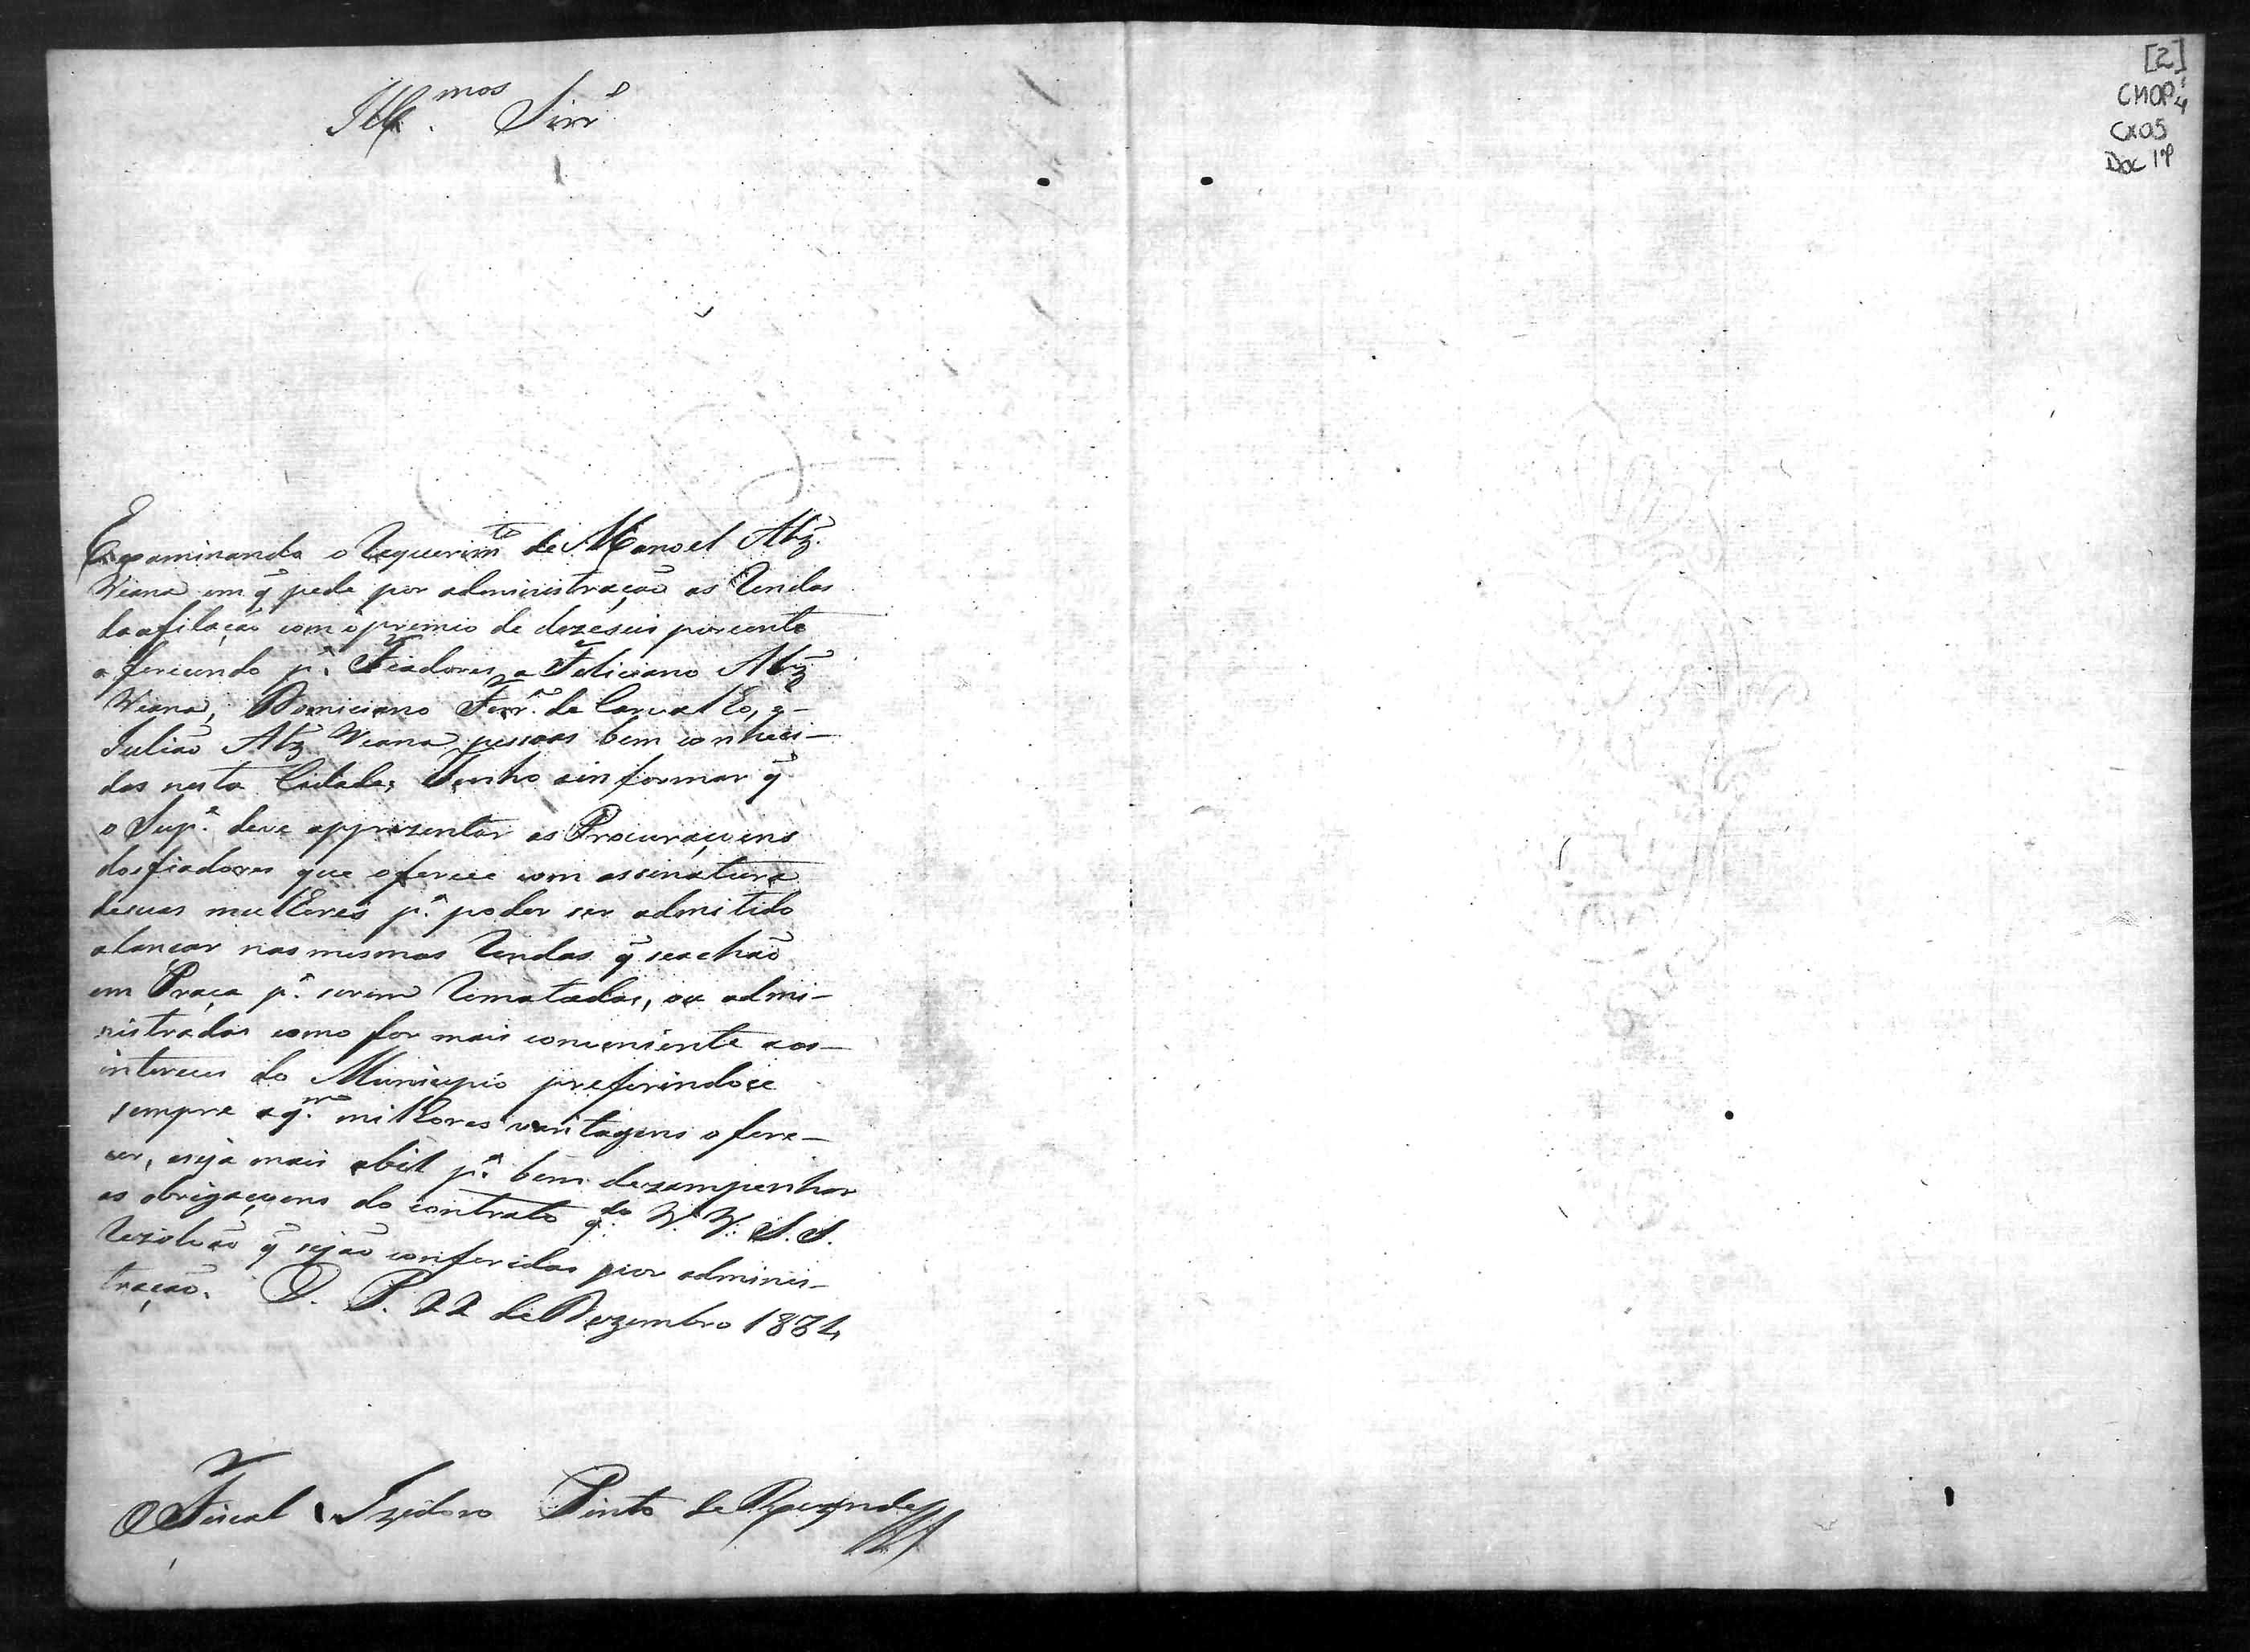 Ill.mos Snrs
[2]
CMOP
CX05
Doc
Examinando o Requerimto de Manoel Alz.
Viana em q̃ pede por administração as Rendas
da afilação com o premio de dezeseis por cento
oferecendo pa. Fiadores a Feliciano Alz
Viana, Domiciano Ferra. de Carvalho, e
Julião Alz Viana pessoas bem conheci-
das nesta Cidade; Tenho ainformar q̃
o Supe. deve apprezentar as Procuraçoens
dosfiadores que oferece com assinatura
desuas mulheres pa. poder ser admitido
alançar nas mesmas Rendas q̃ seachão
em Praça pa. serem Rematadas, ou admi-
nistradas como for mais conveniente aos
intereces do Municipio preferindose
sempre aqm. milhores vantagens ofere-
cer, eseja mais abil pa. bem dezempenhar
as obrigaçoens do contrato qdo. V. V. S. S.
Rezolvão q̃ sejão conferidas por adminis-
tração. O. P. 22 de Dezembro 1834
O Fiscal Izidoro Pinto de Rezende